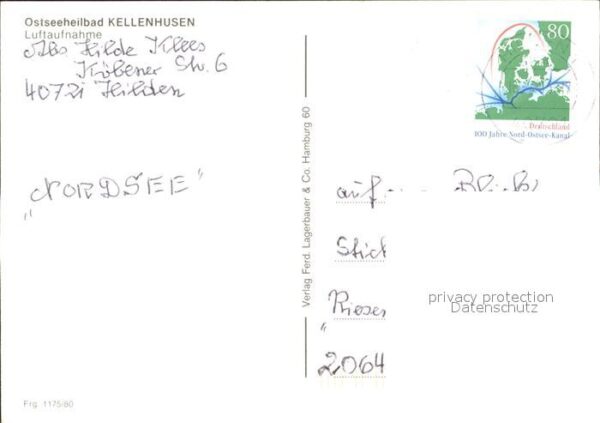 Ostseeheilbad KELLENHUSEN
Luftaufnahme
Abs Hilde Klees
Kölner Str. 6
40721 Hilden
80
Deutschland
100 Jahre Nord-Ostsee-Kanal
"NORDSEE"
Verlag Ferd. Lagerbauer & Co. Hamburg 60
auf
Stich
"
2064
privacy protection
Datenschutz
Frg. 1175/80